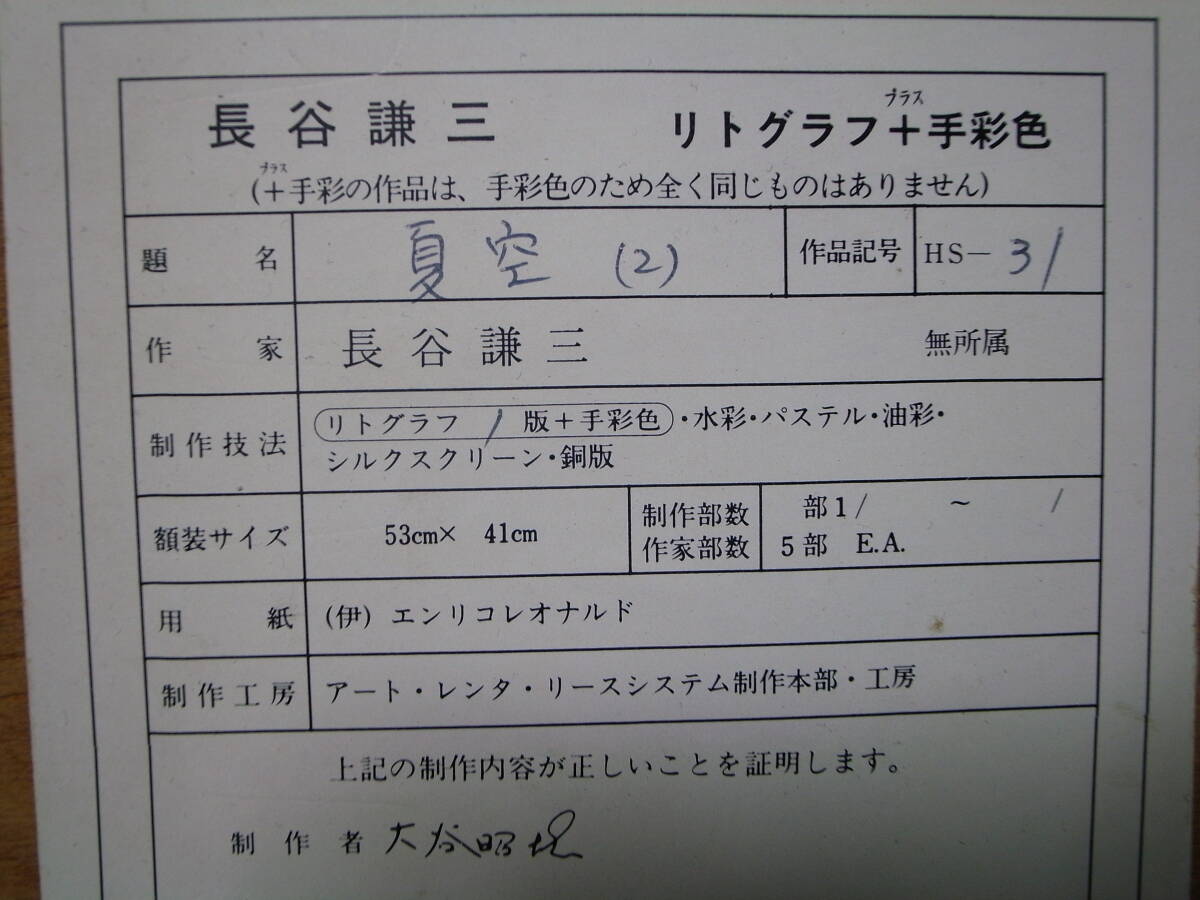 長谷謙三 リトグラフ＋手彩色
プラス
プラス
(＋手彩の作品は、手彩色のため全く同じものはありません)
題名 夏空 (2) 作品記号 HS－31
作家 長谷謙三 無所属
制作技法 リトグラフ 1 版＋手彩色・水彩・パステル・油彩・
シルクスクリーン・銅版
額装サイズ 53cm× 41cm
制作部数 部1/ ～ /
作家部数 5部 E.A.
用紙 (伊) エンリコレオナルド
制作工房 アート・レンタ・リースシステム制作本部・工房
上記の制作内容が正しいことを証明します。
制作者 大谷昭